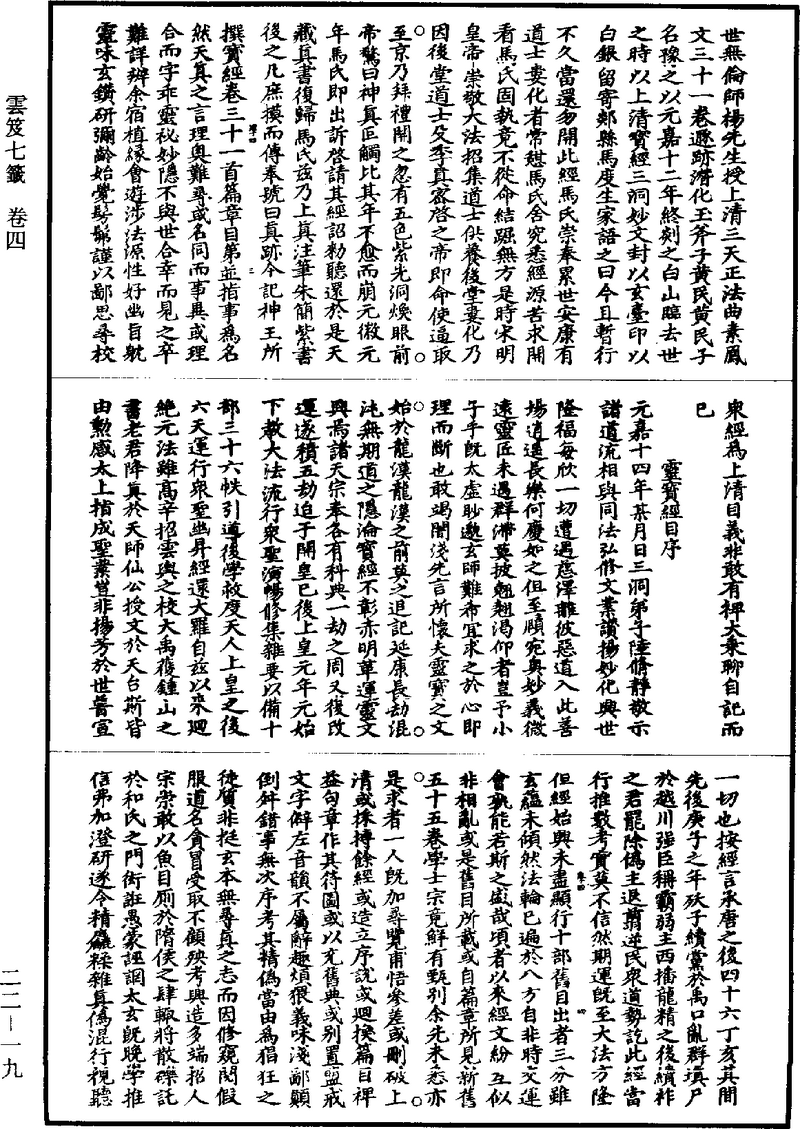 雲笈七籤 卷四
二二—一九
世無倫師楊先生授上清三天正法曲素鳳
文三十一卷遯跡潛化玉斧子黃民黃民子
名豫之以元嘉十二年終剡之白山臨去世
之時以上清寶經三洞妙文封以玄臺印以
白銀留寄剡縣馬度生家語之曰今且暫行
不久當還勿開此經馬氏崇奉累世安康有
道士婁化者常憇馬氏舍究悉經源苦求開
看馬氏固執竟不從命結踞無方是時宋明
皇帝崇敬大法招集道士供養後堂婁化乃
因後堂道士殳季真密啓之帝即命使逼取
至京乃拜禮開之忽有五色紫光洞煥眼前
帝驚曰神真叵觸比其年不愈而崩元徽元
年馬氏即出訴啓請其經詔勑聽還於是天
藏真書復歸馬氏茲乃上真注筆朱簡紫書
後之凡庶摸而傳奉號曰真跡今記神王所
撰寶經卷三十一首篇章目第並指事為名
然天真之言理奧難尋或名同而事異或理
合而字乖靈秘妙隱不與世合幸而見之卒
難詳辯余宿植緣會遊涉法源性好幽旨躭
靈味玄鑽研彌齡始覺髣髴謹以鄙思尋校
衆經為上清目義非敢有裨大乘聊自記而
已
靈寶經目序
元嘉十四年某月日三洞弟子陸脩靜敬示
諸道流相與同法弘修文業讚揚妙化興世
隆福每欣一切遭遇慈澤離彼惡道入此善
場逍遙長樂何慶如之但至賾宛奧妙義微
遠靈匠未遇群滯莫披翹翹渴仰者豈予小
子乎旣太虛眇邈玄師難希宜求之於心即
理而斷也敢竭闇淺先言所懷夫靈寶之文
始於龍漢龍漢之前莫之追記延康長劫混
沌無期道之隱淪寶經不彰赤明革運靈文
興焉諸天宗奉各有科典一劫之周又復改
運遂積五劫迨于開皇已後上皇元年元始
下教大法流行衆聖演暢修集雜要以備十
部三十六帙引導後學救度天人上皇之後
六天運行衆聖幽昇經還大羅自茲以來廻
絶元法雖高辛招雲輿之校大禹獲鍾山之
書老君降真於天師仙公授文於天台斯皆
由勲感太上指成聖業豈非揚芳於世普宣
一切也按經言承唐之後四十六丁亥其間
先後庚子之年殀子續黨於禹口亂群填尸
於越川强臣稱霸弱主西播龍精之後續祚
之君罷除偽主退翦逆民衆道勢訖此經當
行推數考實莫不信然期運旣至大法方隆
但經始興未盡顯行十部舊目出者三分雖
玄蘊未傾然法輪已遍於八方自非時交運
會孰能若斯之盛哉頃者以來經文紛互似
非相亂或是舊目所載或自篇章所見新舊
五十五卷學士宗竟鮮有甄别余先未悉亦
是求者一人旣加尋覽甫悟叅差或刪破上
清或採摶餘經或造立序說或廻換篇目裨
益句章作其符圖或以充舊典或别置盟戒
文字僻左音韻不屬辭趣煩猥義味淺鄙顛
倒舛錯事無次序考其精偽當由為猖狂之
徒質非挺玄本無尋真之志而因修窺閱假
服道名貪冒受取不顧殃考興造多端招人
宗崇敢以魚目厠於隋侯之肆輙將散礫託
於和氏之門衒誑愚蒙誣誷太玄旣晚學推
信弗加澄研遂令精麤糅雜真偽混行視聽